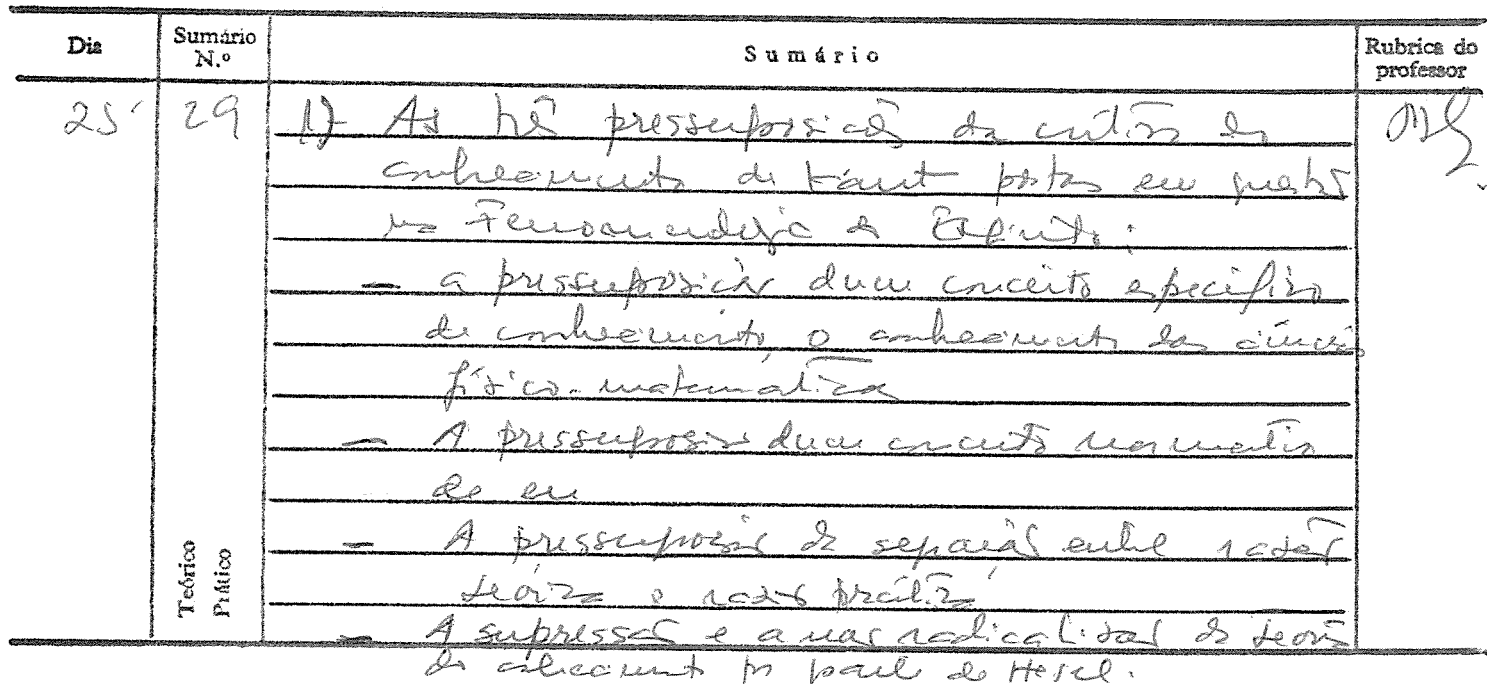 Dia Sumário N.º Sumário Rubrica do professor
25 29 1) As três pressuposições da crítica do
conhecimento de Kant postas em questão
na Fenomenologia do Espírito:
— a pressuposição dum conceito específico
de conhecimento, o conhecimento das ciências
físico-matemáticas
— A pressuposição dum conceito normativo
de eu
— A pressuposição da separação entre razão
teórica e razão prática
— A supressão e a não radicalização da teoria
do conhecimento por parte de Hegel.
Teórico
Prático